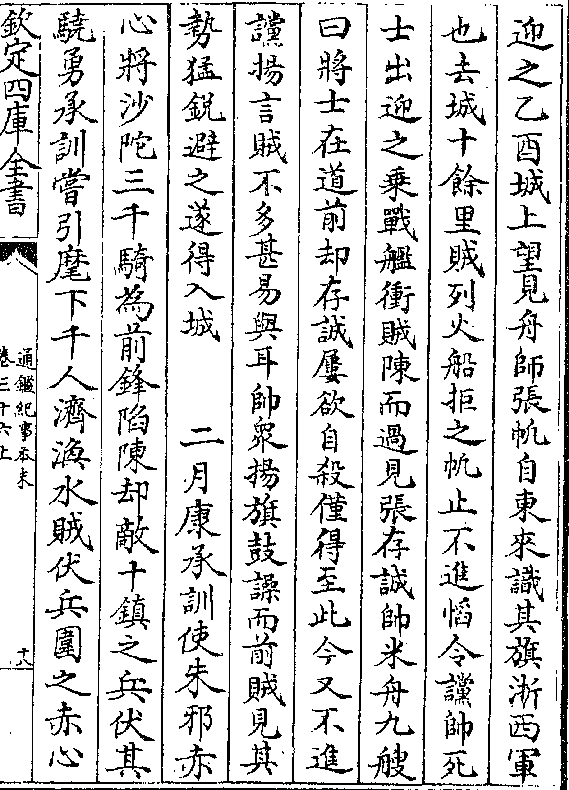 迎之乙酉城上望見舟師張帆自東來識其旗浙西軍
也去城十餘里賊列火船拒之帆止不進慆令讜帥死
士出迎之乗戰艦衝賊陳而過見張存誠帥米舟九艘
曰將士在道前却存誠屢欲自殺僅得至此今又不進
讜揚言賊不多甚易與耳帥衆揚旗鼓譟而前賊見其
勢猛鋭避之遂得入城　二月康承訓使朱邪赤
心將沙陀三千騎為前鋒陷陳却敵十鎮之兵伏其
驍勇承訓嘗引麾下千人濟渙水賊伏兵圍之赤心
欽定四庫全書
通鑑紀事本末
卷三十六上
十八